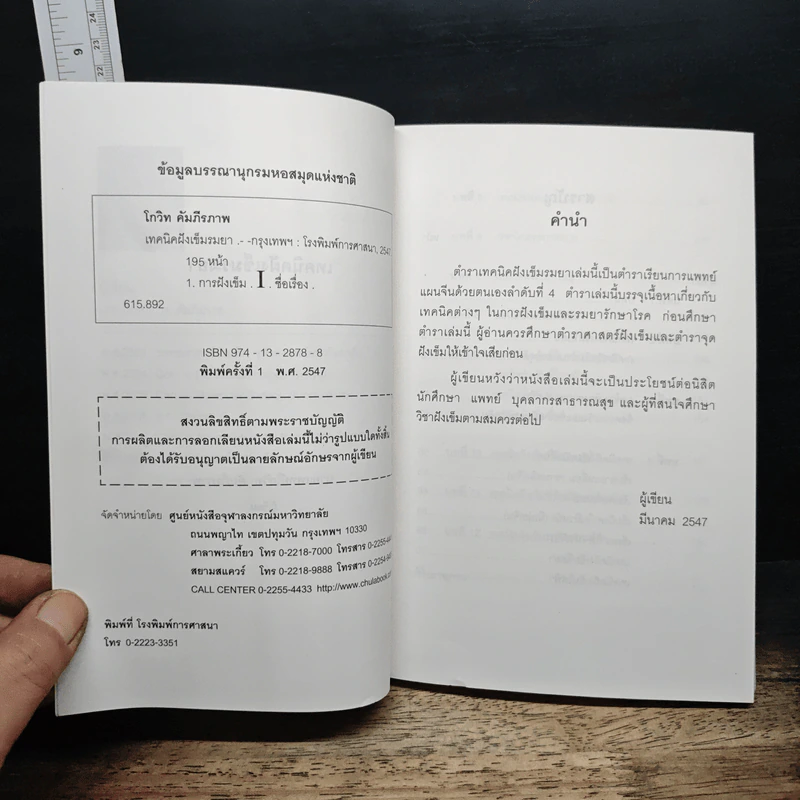 9
24
23
22
ข้อมูลบรรณานุกรมหอสมุดแห่งชาติ
โกวิท คัมภีรภาพ
เทคนิคฝังเข็มรมยา .- -กรุงเทพฯ : โรงพิมพ์การศาสนา, 2547
195 หน้า
1. การฝังเข็ม . I . ชื่อเรื่อง .
615.892
ISBN 974 - 13 - 2878 - 8
พิมพ์ครั้งที่ 1 พ.ศ. 2547
สงวนลิขสิทธิ์ตามพระราชบัญญัติ
การผลิตและการลอกเลียนหนังสือเล่มนี้ไม่ว่ารูปแบบใดทั้งสิ้น
ต้องได้รับอนุญาตเป็นลายลักษณ์อักษรจากผู้เขียน
จัดจำหน่ายโดย ศูนย์หนังสือจุฬาลงกรณ์มหาวิทยาลัย
ถนนพญาไท เขตปทุมวัน กรุงเทพฯ 10330
ศาลาพระเกี้ยว โทร 0-2218-7000 โทรสาร
สยามสแควร์ โทร 0-2218-9888 โทรสาร
CALL CENTER 0-2255-4433 http://www.chulabook.
พิมพ์ที่ โรงพิมพ์การศาสนา
โทร 0-2223-3351
คำนำ
ตำราเทคนิคฝังเข็มรมยาเล่มนี้เป็นตำราเรียนการแพทย์
แผนจีนด้วยตนเองลำดับที่ 4 ตำราเล่มนี้บรรจุเนื้อหาเกี่ยวกับ
เทคนิคต่างๆ ในการฝังเข็มและรมยารักษาโรค ก่อนศึกษา
ตำราเล่มนี้ ผู้อ่านควรศึกษาตำราศาสตร์ฝังเข็มและตำราจุด
ฝังเข็มให้เข้าใจเสียก่อน
ผู้เขียนหวังว่าหนังสือเล่มนี้จะเป็นประโยชน์ต่อนิสิต
นักศึกษา แพทย์ บุคลากรสาธารณสุข และผู้ที่สนใจศึกษา
วิชาฝังเข็มตามสมควรต่อไป
ผู้เขียน
มีนาคม 2547